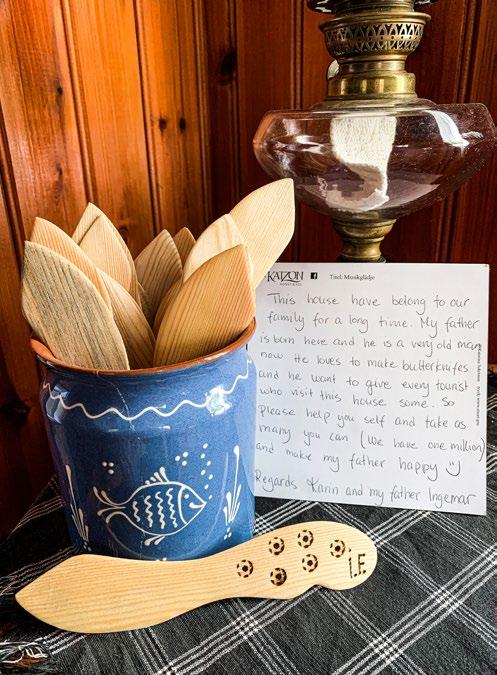 KATZON
Titel: Musikglädje
This house have belong to our
family for a long time. My father
is born here and he is a very old man
now He loves to make butterknifes
and he want to give every tourist
who visit this house some. So
please help you self and take as
many you can (We have one million)
and make my father happy
Regards Karin and my father Ingemar
I.E